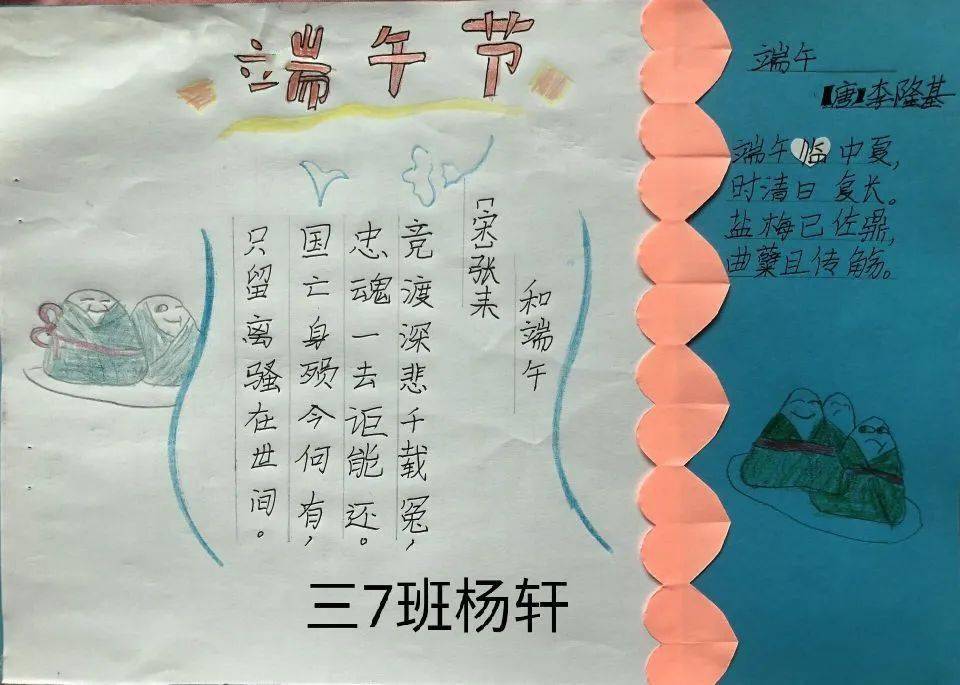 端午节
和端午
[宋]张耒
竞渡深悲千载冤，
忠魂一去讵能还。
国亡身殒今何有，
只留离骚在世间。
三7班杨轩
端午
【唐】李隆基
端午临中夏，
时清日复长。
盐梅已佐鼎，
曲糵且传觞。